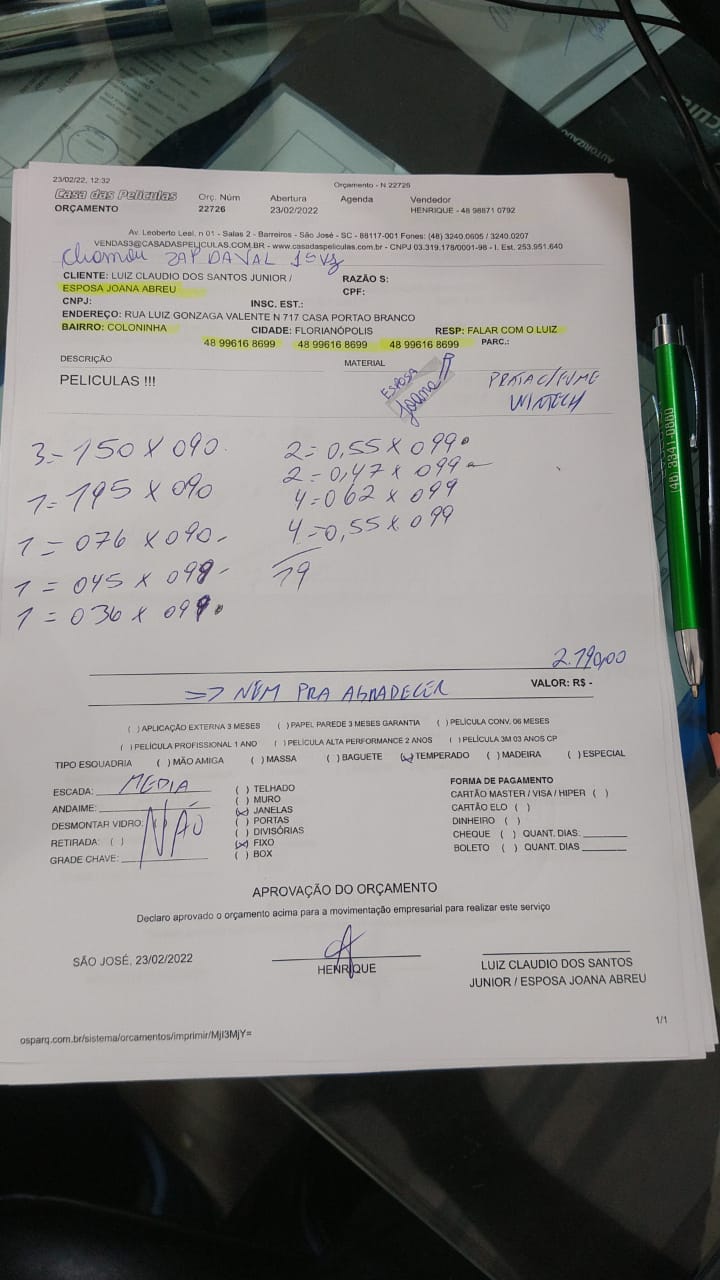 23/02/22, 12:32
Orçamento - N.22726
Casa das Películas
ORÇAMENTO
Orç. Núm
22726
Abertura
23/02/2022
Agenda
Vendedor
HENRIQUE - 48 98871 0792
Av. Leoberto Leal, n 01 - Salas 2 - Barreiros - São José - SC - 88117-001 Fones: (48) 3240.0605 / 3240.0207
VENDAS3@CASADASPELICULAS.COM.BR - www.casadaspeliculas.com.br - CNPJ 03.319.178/0001-98 - I. Est. 253.951.640
Chamou ZAP
CLIENTE: LUIZ CLAUDIO DOS SANTOS JUNIOR / RAZÃO S:
ESPOSA JOANA ABREU CPF:
CNPJ: INSC. EST.:
ENDEREÇO: RUA LUIZ GONZAGA VALENTE N 717 CASA PORTAO BRANCO
BAIRRO: COLONINHA CIDADE: FLORIANÓPOLIS RESP: FALAR COM O LUIZ
48 99616 8699 48 99616 8699 48 99616 8699 PARC.:
DESCRIÇÃO MATERIAL
PELICULAS !!!
ESPOSA
Joana
PRATA C/FUME
WINTECH
3=150 X 090
1=195 X 090
1=076 X 090
1=045 X 099
1=036 X 099
2=0,55 X 099
2=0,47 X 099
4=062 X 099
4=0,55 X 099
19
2.190,00
=> NEM PRA AGRADECER VALOR: R$ -
( ) APLICAÇÃO EXTERNA 3 MESES ( ) PAPEL PAREDE 3 MESES GARANTIA ( ) PELÍCULA CONV. 06 MESES
( ) PELÍCULA PROFISSIONAL 1 ANO ( ) PELÍCULA ALTA PERFORMANCE 2 ANOS ( ) PELÍCULA 3M 03 ANOS CP
TIPO ESQUADRIA ( ) MÃO AMIGA ( ) MASSA ( ) BAGUETE (x) TEMPERADO ( ) MADEIRA ( ) ESPECIAL
ESCADA: MEDIA
ANDAIME:
DESMONTAR VIDRO:
NÃO
RETIRADA: ( )
GRADE CHAVE:
( ) TELHADO
( ) MURO
(x) JANELAS
( ) PORTAS
( ) DIVISÓRIAS
(x) FIXO
( ) BOX
FORMA DE PAGAMENTO
CARTÃO MASTER / VISA / HIPER ( )
CARTÃO ELO ( )
DINHEIRO ( )
CHEQUE ( ) QUANT. DIAS:
BOLETO ( ) QUANT. DIAS
APROVAÇÃO DO ORÇAMENTO
Declaro aprovado o orçamento acima para a movimentação empresarial para realizar este serviço
SÃO JOSÉ, 23/02/2022
HENRIQUE
LUIZ CLAUDIO DOS SANTOS
JUNIOR / ESPOSA JOANA ABREU
1/1
osparq.com.br/sistema/orcamentos/imprimir/MjI3MjY=
AUTORIZADO